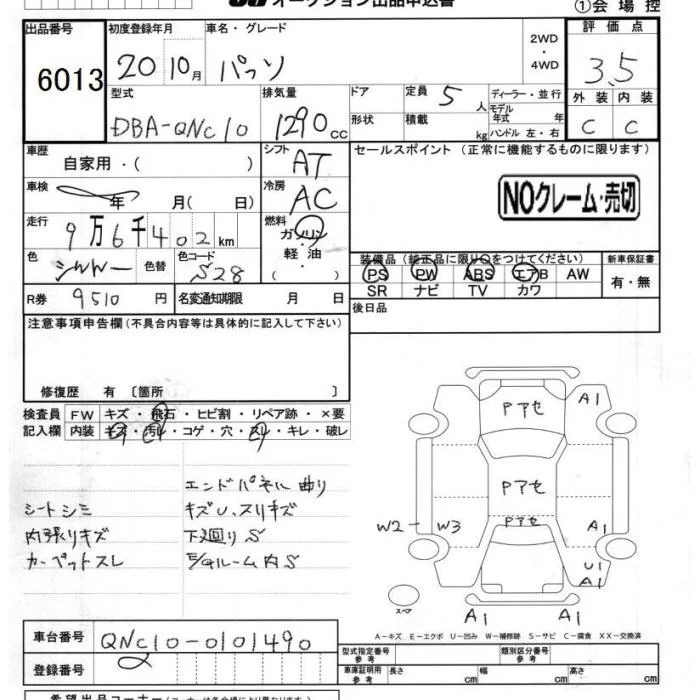 オークション出品申込書
①会場控
出品番号 初度登録年月 車名・グレード 評価点
6013 20 10月 パッソ 2WD・4WD 3.5
型式 排気量 ドア 定員 5人 ディーラー・並行 外装 内装
DBA-QNC10 1290cc 形状 積載 kg モデル年式 年 ハンドル 左・右 C C
車歴 自家用・( ) シフト AT セールスポイント (正常に機能するものに限ります)
車検 年 月( 日) 冷房 AC NOクレーム・売切
走行 9万6千402km 燃料 ガソリン・軽油・( )
色 シルバー 色替 色コード S28
装備品 (純正品に限り○をつけてください) 新車保証書
PS PW ABS エアB AW 有・無
SR ナビ TV カワ
R券 9510円 名変通知期限 月 日 後日品
注意事項申告欄 (不具合内容等は具体的に記入して下さい)
修復歴 有 〔箇所 〕
検査員 FW キズ・飛石・ヒビ割・リペア跡・×要
記入欄 内装 キズ・汚レ・コゲ・穴・スレ・キレ・破レ
エンドパネル曲り
シートシミ キズU、スリキズ
内張りキズ 下廻りS
カーペットスレ E/gルーム内S
Pアセ A1
Pアセ
Pアセ
W2 W3 A1
U1
A1
スペア A1 A1
A-キズ E-エクボ U-凹み W-補修跡 S-サビ C-腐食 XX-交換済
車台番号 QNC10-0101490
登録番号
型式指定番号 参考 類別区分番号 参考
車庫証明用 参考 長さ cm 幅 cm 高さ cm
希望出品コーナー